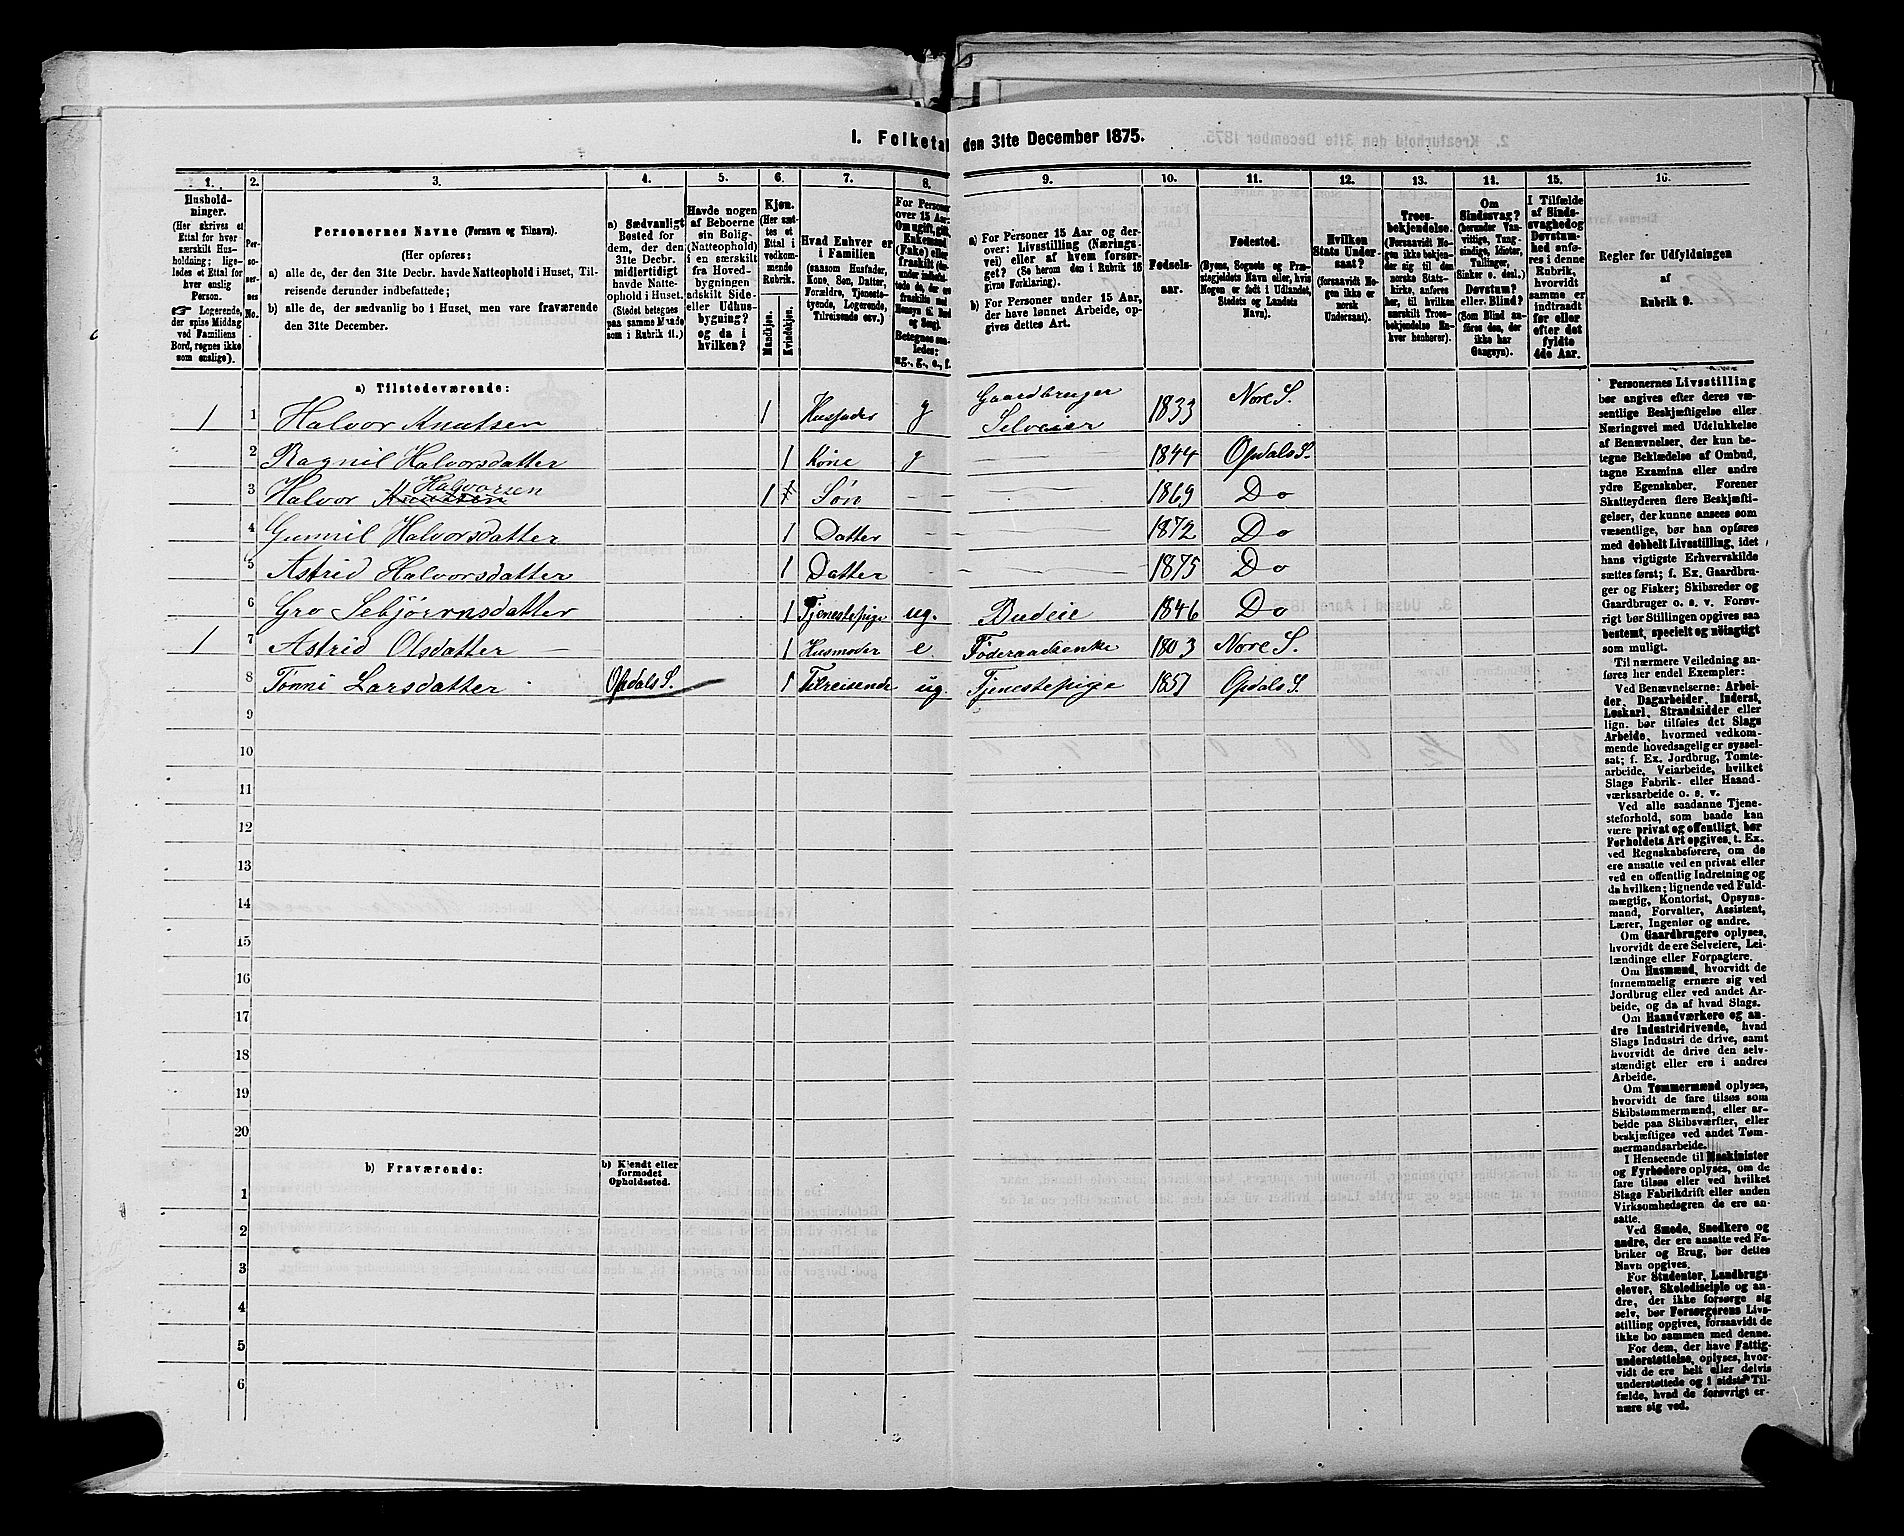 1. Folketa den 31te December 1875.
1. 2. 3. 4. 5. 6. 7. 8. 9. 10. 11. 12. 13. 14. 15. 16.
Hushold-
ninger.
(Her skrives et
Ettal for hver
særskilt Hus-
holdning; lige-
ledes et Ettal for
hver enslig
Person.
Logerende,
der spise Middag
ved Familiens
Bord, regnes ikke
som enslige).
Per-
so-
ner-
nes
No.
Personernes Navne (Fornavn og Tilnavn).
(Her opføres:
a) alle de, der den 31te Decbr. havde Natteophold i Huset, Til-
reisende derunder indbefattede;
b) alle de, der sædvanlig bo i Huset, men vare fraværende
den 31te December.
a) Sædvanligt
Bosted for
dem, der den
31te Decbr.
midlertidigt
havde Natte-
ophold i Huset.
(Stedet betegnes
paa samme Maade
som i Rubrik 11.)
Havde nogen
af Beboerne
sin Bolig
(Natteophold)
i en særskilt
fra Hoved-
bygningen
adskilt Side-
eller Udhus-
bygning?
og da i
hvilken?
Kjøn.
(Her sæt-
tes et
Ettal i
vedkom-
mende
Rubrik.
Mandkjøn.
Kvindekjøn.
Hvad Enhver er
i Familien
(saasom Husfader,
Kone, Søn, Datter,
Forældre, Tjeneste-
tyende, Logerende,
Tilreisende osv.)
For Personer
over 15 Aar:
Om ugift, gift,
Enkemand
(Enke) eller
fraskilt
Betegnes saa-
ledes:
ug., g., e., f.
a) For Personer 15 Aar og der-
over: Livsstilling (Nærings-
vei) eller af hvem forsør-
get? (Se herom den i Rubrik 16
givne Forklaring).
b) For Personer under 15 Aar,
der have lønnet Arbeide, op-
gives dettes Art.
Fødsels-
aar.
Fødested.
(Byens, Sognets og Præ-
stegjeldets Navn eller, hvis
Nogen er født i Udlandet,
Stedets og Landets
Navn).
Hvilken
Stats Under-
saat?
(forsaavidt No-
gen ikke er
norsk
Undersaat).
Troes-
bekjendelse.
(Forsaavidt No-
gen ikke bekjen-
der sig til den
norske Stats-
kirke, anføres
her, til hvilken
særskilt Troes-
bekjendelse En-
hver henhører).
Om
Sindssvag?
(herunder Van-
vittige, Tung-
sindige, Idioter,
Tullinger,
Sinker o. desl.)
Døvstum?
eller Blind?
(Som Blind an-
føres den, der
ikke har
Gangsyn).
I Tilfælde
af Sinds-
svaghed og
Døvstum-
hed anfø-
res i denne
Rubrik,
hvorvidt
samme er
indtraadt
før eller
efter det
fyldte
4de Aar.
Regler for Udfyldningen
af
Rubrik 9.
a) Tilstedeværende:
1 1 Halvor Knutsen 1 Husfader g Gaardbruger Selveier 1833 Nore S.
2 Ragnil Halvorsdatter 1 Kone g 1844 Opdals S.
3 Halvor Knutsen Halvorsen 1 1 Søn 1869 Do
4 Gunnil Halvorsdatter 1 Datter 1872 Do
5 Astrid Halvorsdatter 1 Datter 1875 Do
6 Gro Sebjørnsdatter 1 Tjenestepige ug. Budeie 1846 Do
1 7 Astrid Olsdatter 1 Husmoder e. Føderaadsenke 1803 Nore S.
8 Tønni Larsdatter Opdals S. 1 Tilreisende ug Tjenestepige 1857 Opdals S.
9
10
11
12
13
14
15
16
17
18
19
20
b) Fraværende:
b) Kjendt eller
formodet
Opholdssted.
1
2
3
4
5
6
Personernes Livsstilling
bør angives efter deres væ-
sentlige Beskjæftigelse eller
Næringsvei med Udelukkelse
af Benævnelser, der kun be-
tegne Beklædelse af Ombud,
tagne Examina eller andre
ydre Egenskaber. Forener
Skatteyderen flere Beskjæfti-
gelser, der kunne ansees som
væsentlige, bør han opføres
med dobbelt Livsstilling, idet
hans vigtigste Erhvervskilde
sættes først; f. Ex. Gaardbru-
ger og Fisker; Skibsreder og
Gaardbruger o. s. v. Forøv-
rigt bør Stillingen opgives saa
bestemt, specielt og nøiagtigt
som muligt.
Til nærmere Veiledning an-
føres her endel Exempler:
Ved Benævnelserne: Arbei-
der, Dagarbeider, Inderst,
Løskarl, Strandsidder eller
lign. bør tilføies det Slags
Arbeide, hvormed vedkom-
mende hovedsagelig er syssel-
sat; f. Ex. Jordbrug, Tomte-
arbeide, Veiarbeide, hvilket
Slags Fabrik- eller Haand-
værksarbeide o. s. v.
Ved alle saadanne Tjene-
steforhold, som baade kan
være privat og offentligt, bør
Forholdets Art opgives, t. Ex.
ved Regnskabsførere, om de
ere ansatte ved en privat eller
ved en offentlig Indretning og
da hvilken; lignende ved Fuld-
mægtig, Kontorist, Opsyns-
mand, Forvalter, Assistent,
Lærer, Ingeniør og andre.
Om Gaardbrugere oplyses,
hvorvidt de ere Selveiere, Lei-
lændinge eller Forpagtere.
Om Husmænd, hvorvidt de
fornemmelig ernære sig ved
Jordbrug eller ved andet Ar-
beide, og da af hvad Slags.
Om Haandværkere og an-
dre Industridrivende, hvad
Slags Industri de drive, samt
hvorvidt de drive den selv-
stændigt eller ere i andres
Arbeide.
Om Tømmermænd oplyses,
hvorvidt de fare tilsøs som
Skibstømmermænd, eller ar-
beide paa Skibsværfter, eller
beskjæftiges ved andet Tøm-
mermandsarbeide.
I Henseende til Maskinister
og Fyrbødere oplyses, om de
fare tilsøs eller ved hvilket
Slags Fabrikdrift eller anden
Virksomhedsgren de ere an-
satte.
Ved Smede, Snedkere og
andre, der ere ansatte ved Fa-
briker og Brug, bør dettes
Navn opgives.
For Studenter, Landbrugs-
elever, Skoledisciple og an-
dre, der ikke forsørge sig
selv, bør Forsørgerens Livs-
stilling opgives, forsaavidt de
ikke bo sammen med denne.
For dem, der have Fattig-
understøttelse, oplyses, hvor-
vidt de ere helt eller delvis
understøttede og i sidste Til-
fælde, hvad de forøvrigt er-
nære sig ved.